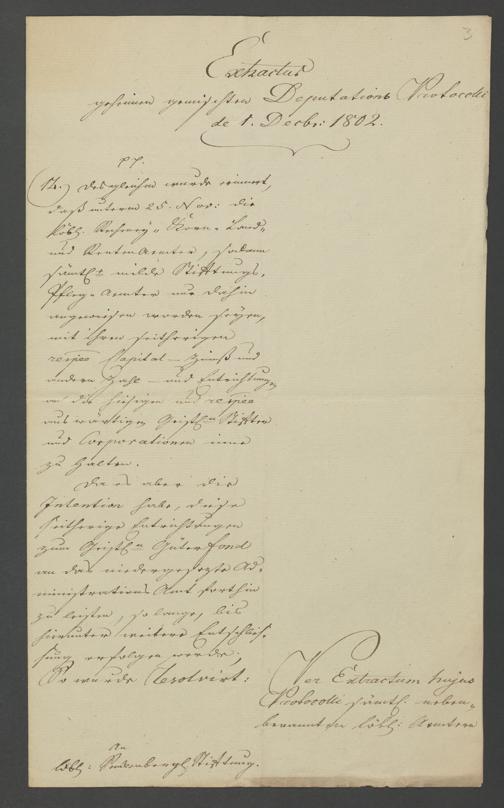 3
Extractus
geheimen gemischten Deputations Protocolli
de 1. Decbr: 1802.
pp.
12.) Desgleichen wurde erinnert,
daß unterm 25. Nov: die
löbl. Rechney- Korn- Land-
und Renten Aemter, sodann
sämtl. milde Stiftungs,
Pfleg-Aemter nur dahin
angewiesen worden seyen,
mit ihren seitherigen
respee Capital- Zinß und
andern Zahl- und Entrichtungen
an die hiesigen und respee
auswärtigen Geistl.n Stifter
und Corporationen inne
zu halten.
Da es aber die
Intention habe, diese
seitherige Entrichtungen
zum Geistl.n Güter fond
an das niedergesezte Ad-
ministrations Amt forthin
zu leisten, solange, bis
hierunter weitere Entschlies-
sung erfolgen werde;
So wurde Resolvirt:
Per Extractum hujus
Protocolli sämtl. neben-
benannten löbl: Aemtern
An
löbl: Stiftung.